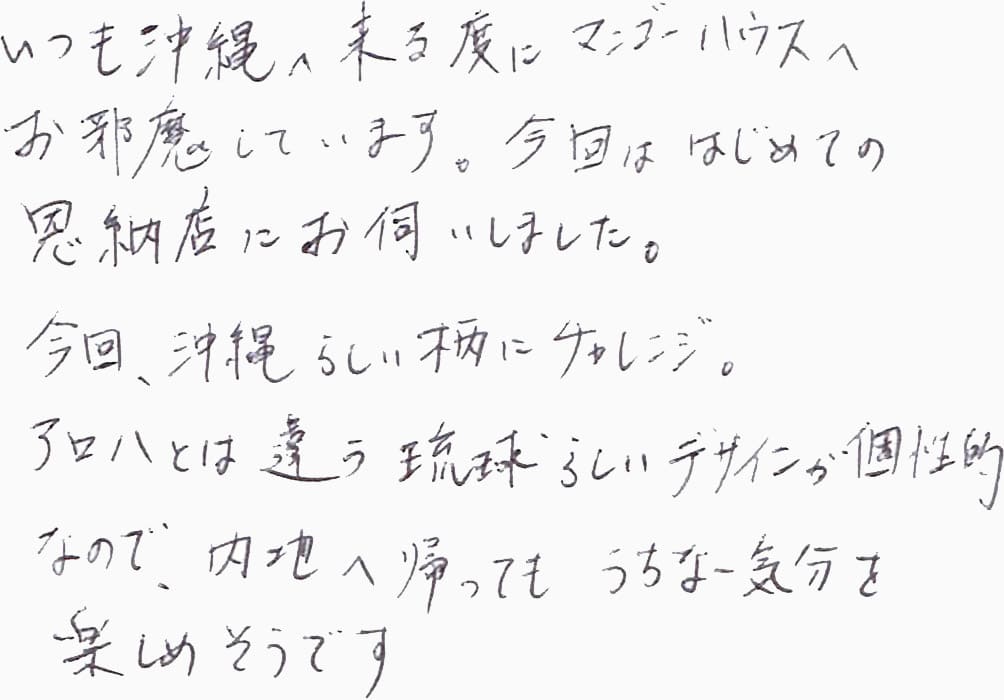 いつも沖縄へ来る度にマンゴーハウスへ
お邪魔しています。今回ははじめての
恩納店にお伺いしました。
今回、沖縄らしい柄にチャレンジ。
アロハとは違う琉球らしいデザインが個性的
なので、内地へ帰ってもうちなー気分を
楽しめそうです